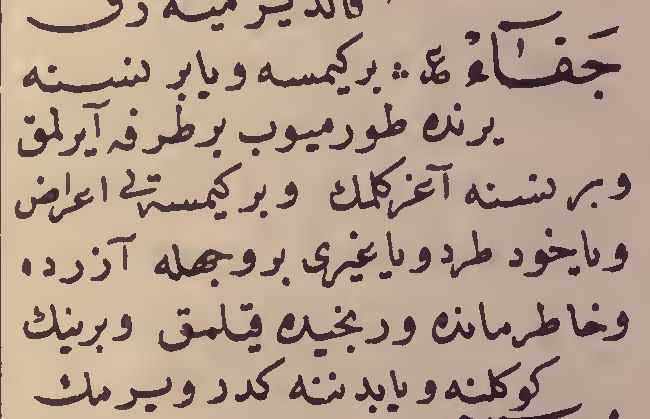 قالدیرمیه رق
جَفَآءْ ع بر كیمسه ویا بر نسنه
یرنده طورمیوب بر طرفه آیرلمق
وبر نسنه آغز كلمك وبر كیمسه تی اعراض
ویاخود طرد ویا غیری بر وجهله آزرده
وخاطرمانده ورنجیده قیلمق وبرینك
كوكلنه ویا بدننه كدر ویرمك